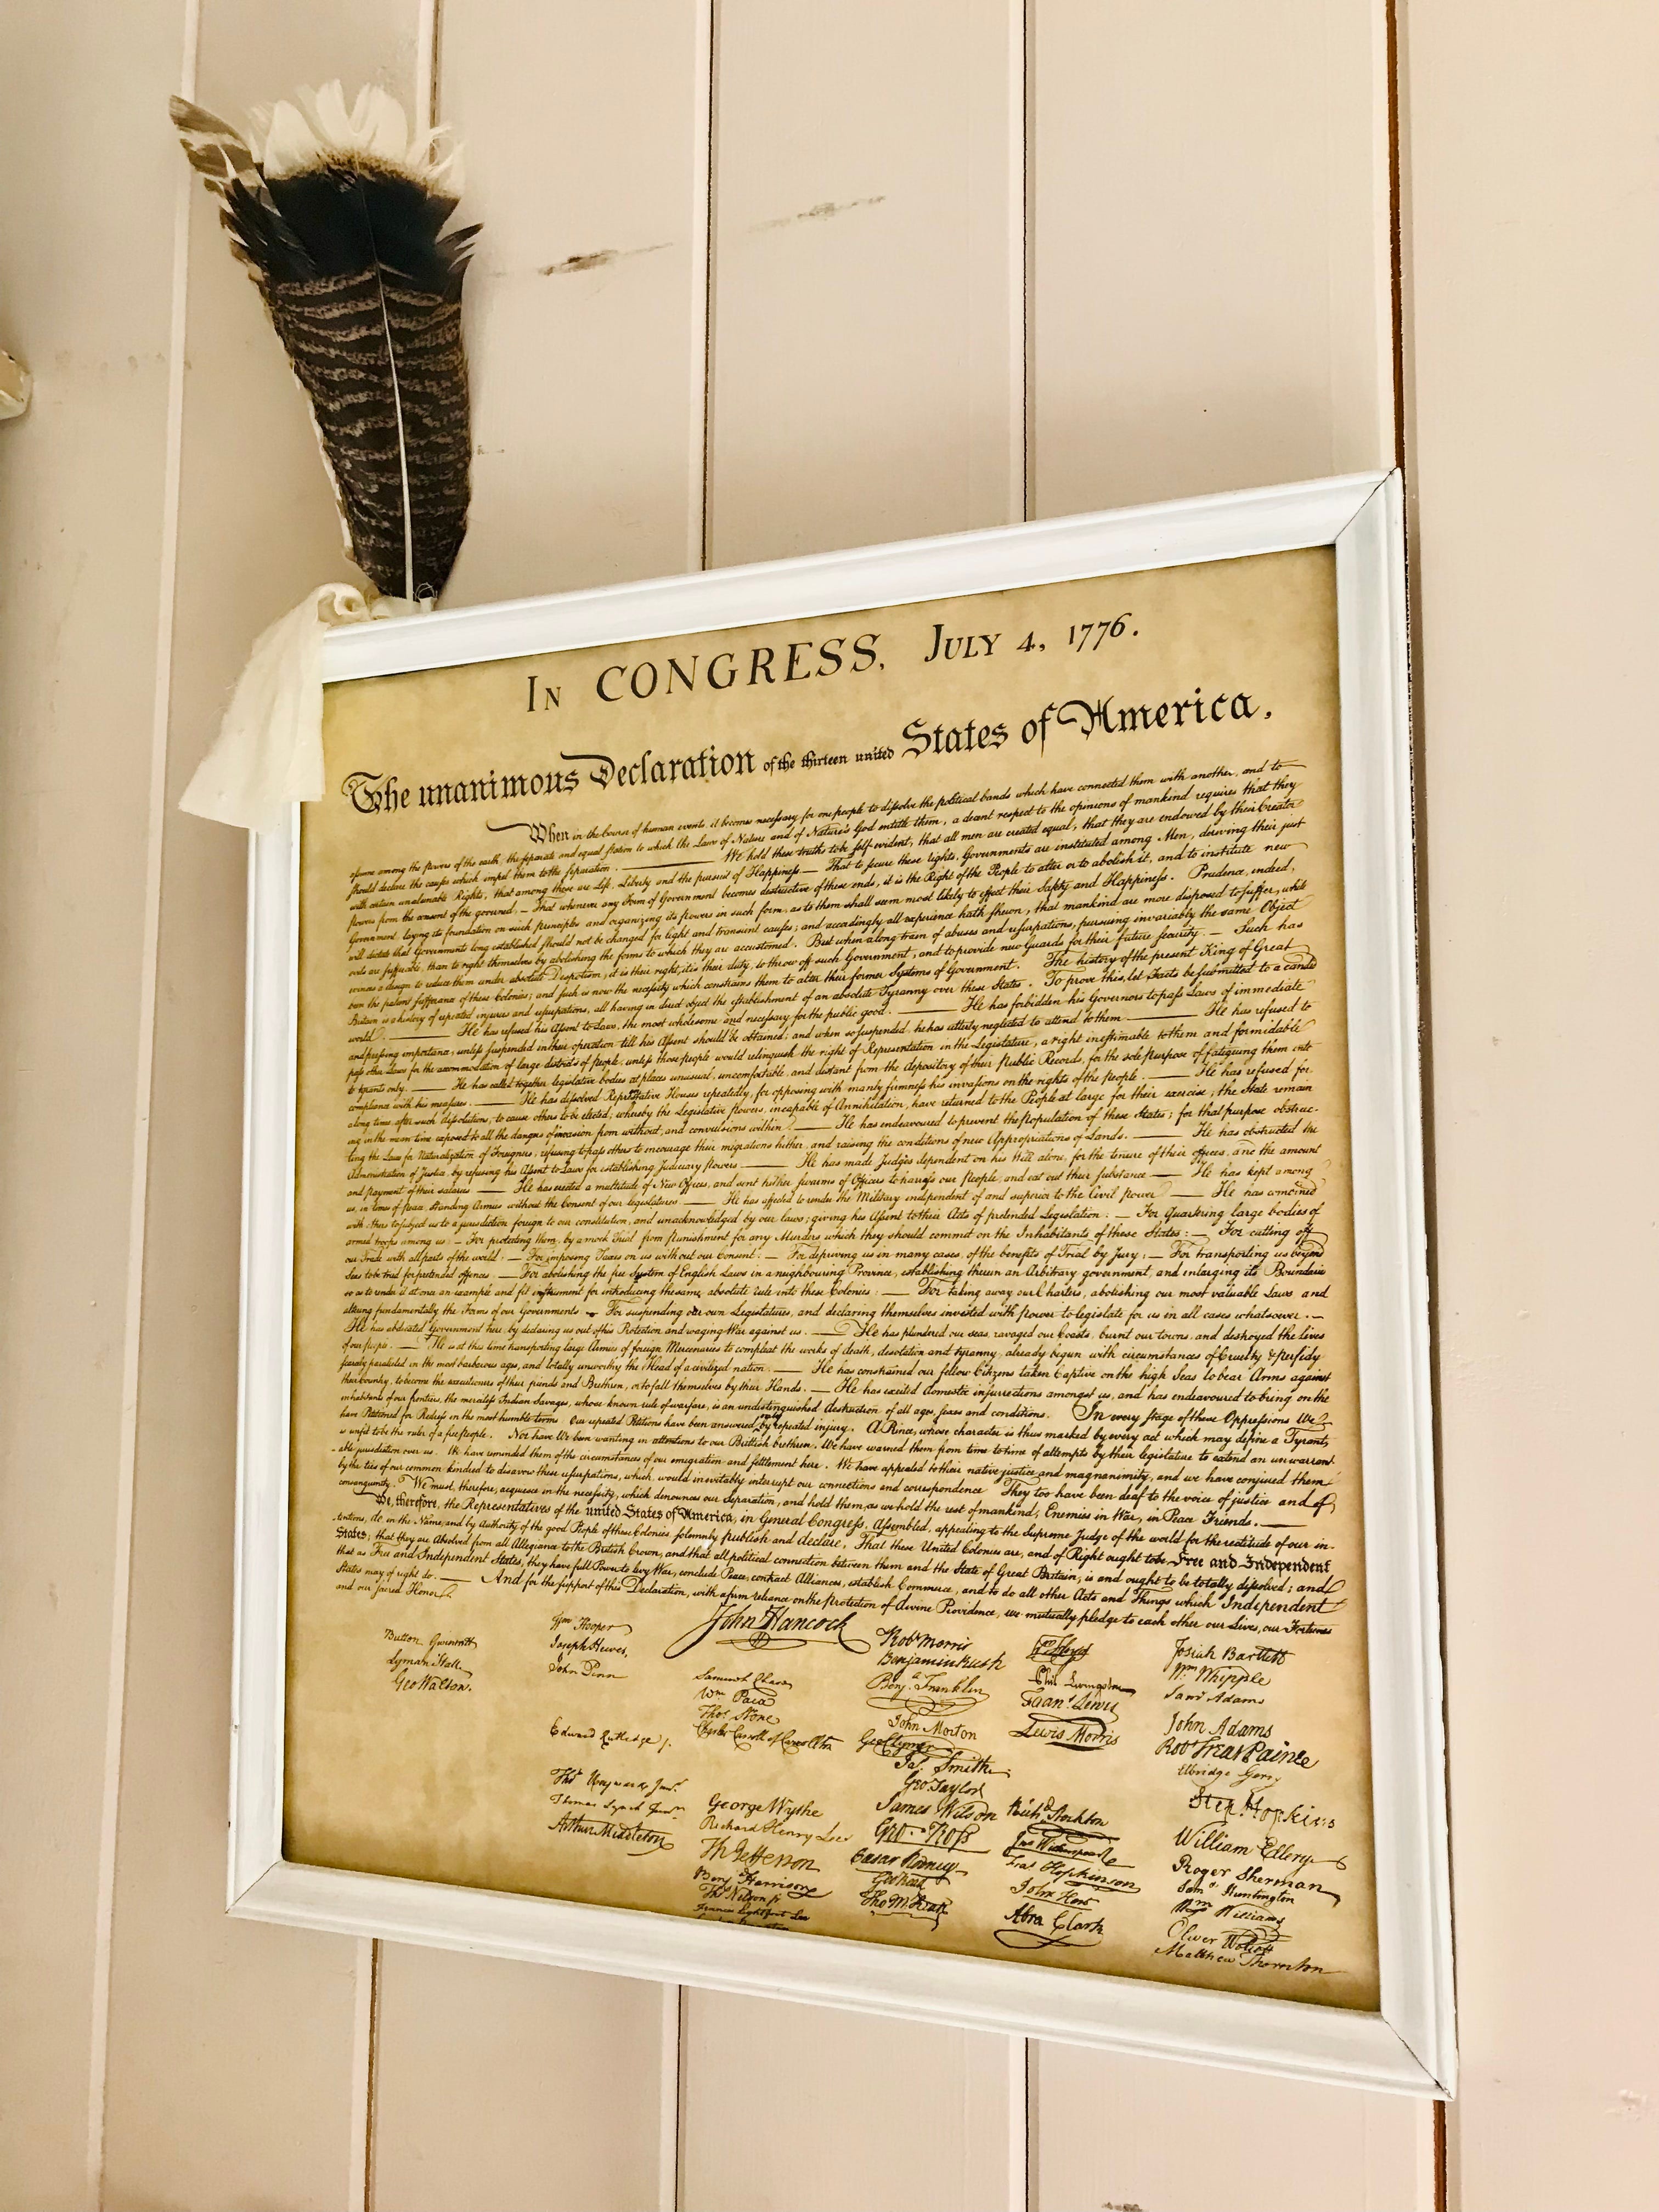 In CONGRESS, July 4, 1776.
The unanimous Declaration of the thirteen united States of America,
When in the Course of human events, it becomes necessary for one people to dissolve the political bands which have connected them with another, and to
assume among the powers of the earth, the separate and equal station to which the Laws of Nature and of Nature's God entitle them, a decent respect to the opinions of mankind requires that they
should declare the causes which impel them to the separation. — We hold these truths to be self-evident, that all men are created equal, that they are endowed by their Creator
with certain unalienable Rights, that among these are Life, Liberty and the pursuit of Happiness — That to secure these rights, Governments are instituted among Men, deriving their just
powers from the consent of the governed, — That whenever any Form of Government becomes destructive of these ends, it is the Right of the People to alter or to abolish it, and to institute new
Government, laying its foundation on such principles and organizing its powers in such form, as to them shall seem most likely to effect their Safety and Happiness. Prudence, indeed,
will dictate that Governments long established should not be changed for light and transient causes; and accordingly all experience hath shewn, that mankind are more disposed to suffer, while
evils are sufferable, than to right themselves by abolishing the forms to which they are accustomed. But when a long train of abuses and usurpations, pursuing invariably the same Object
evinces a design to reduce them under absolute Despotism, it is their right, it is their duty, to throw off such Government, and to provide new Guards for their future security. — Such has
been the patient sufferance of these Colonies; and such is now the necessity which constrains them to alter their former Systems of Government. The history of the present King of Great
Britain is a history of repeated injuries and usurpations, all having in direct object the establishment of an absolute Tyranny over these States. To prove this, let Facts be submitted to a candid
world. — He has refused his Assent to Laws, the most wholesome and necessary for the public good. — He has forbidden his Governors to pass Laws of immediate
and pressing importance, unless suspended in their operation till his Assent should be obtained; and when so suspended, he has utterly neglected to attend to them. — He has refused to
pass other Laws for the accommodation of large districts of people, unless those people would relinquish the right of Representation in the Legislature, a right inestimable to them and formidable
to tyrants only. — He has called together legislative bodies at places unusual, uncomfortable, and distant from the depository of their Public Records, for the sole purpose of fatiguing them into
compliance with his measures. — He has dissolved Representative Houses repeatedly, for opposing with manly firmness his invasions on the rights of the people. — He has refused for
a long time, after such dissolutions, to cause others to be elected; whereby the Legislative powers, incapable of Annihilation, have returned to the People at large for their exercise; the State remain
ing in the mean time exposed to all the dangers of invasion from without, and convulsions within. — He has endeavoured to prevent the population of these States; for that purpose obstruc-
ting the Laws for Naturalization of Foreigners; refusing to pass others to encourage their migrations hither, and raising the conditions of new Appropriations of Lands. — He has obstructed the
Administration of Justice, by refusing his Assent to Laws for establishing Judiciary powers. — He has made Judges dependent on his Will alone, for the tenure of their offices, and the amount
and payment of their salaries. — He has erected a multitude of New Offices, and sent hither swarms of Officers to harrass our People, and eat out their substance. — He has kept among
us, in times of peace, Standing Armies without the Consent of our legislatures. — He has affected to render the Military independent of and superior to the Civil power. — He has combined
with others to subject us to a jurisdiction foreign to our constitution, and unacknowledged by our laws; giving his Assent to their Acts of pretended Legislation: — For quartering large bodies of
armed troops among us: — For protecting them, by a mock Trial from punishment for any Murders which they should commit on the Inhabitants of these States: — For cutting off
our Trade with all parts of the world: — For imposing Taxes on us without our Consent: — For depriving us in many cases, of the benefits of Trial by Jury: — For transporting us beyond
Seas to be tried for pretended offences. — For abolishing the free System of English Laws in a neighbouring Province, establishing therein an Arbitrary government, and enlarging its Boundaries
so as to render it at once an example and fit instrument for introducing the same absolute rule into these Colonies: — For taking away our Charters, abolishing our most valuable Laws, and
altering fundamentally the Forms of our Governments: — For suspending our own Legislatures, and declaring themselves invested with power to legislate for us in all cases whatsoever. —
He has abdicated Government here, by declaring us out of his Protection and waging War against us. — He has plundered our seas, ravaged our Coasts, burnt our towns, and destroyed the lives
of our people. — He is at this time transporting large Armies of foreign Mercenaries to compleat the works of death, desolation and tyranny, already begun with circumstances of Cruelty & perfidy
scarcely paralleled in the most barbarous ages, and totally unworthy the Head of a civilized nation. — He has constrained our fellow Citizens taken Captive on the high Seas to bear Arms against
their Country, to become the executioners of their friends and Brethren, or to fall themselves by their Hands. — He has excited domestic insurrections amongst us, and has endeavoured to bring on the
inhabitants of our frontiers, the merciless Indian Savages, whose known rule of warfare, is an undistinguished destruction of all ages, sexes and conditions. In every stage of these Oppressions We
have Petitioned for Redress in the most humble terms: Our repeated Petitions have been answered only by repeated injury. A Prince, whose character is thus marked by every act which may define a Tyrant,
is unfit to be the ruler of a free people. Nor have We been wanting in attentions to our Brittish brethren. We have warned them from time to time of attempts by their legislature to extend an unwarrant-
able jurisdiction over us. We have reminded them of the circumstances of our emigration and settlement here. We have appealed to their native justice and magnanimity, and we have conjured them
by the ties of our common kindred to disavow these usurpations, which, would inevitably interrupt our connections and correspondence They too have been deaf to the voice of justice and of
consanguinity. We must, therefore, acquiesce in the necessity, which denounces our Separation, and hold them, as we hold the rest of mankind, Enemies in War, in Peace Friends. —
We, therefore, the Representatives of the united States of America, in General Congress, Assembled, appealing to the Supreme Judge of the world for the rectitude of our in-
tentions, do, in the Name, and by Authority of the good People of these Colonies, solemnly publish and declare, That these United Colonies are, and of Right ought to be Free and Independent
States; that they are Absolved from all Allegiance to the British Crown, and that all political connection between them and the State of Great Britain, is and ought to be totally dissolved; and
that as Free and Independent States, they have full Power to levy War, conclude Peace, contract Alliances, establish Commerce, and to do all other Acts and Things which Independent
States may of right do. — And for the support of this Declaration, with a firm reliance on the Protection of divine Providence, we mutually pledge to each other our Lives, our Fortunes
and our sacred Honor.
Button Gwinnett
Lyman Hall
Geo Walton.
Wm Hooper
Joseph Hewes,
John Penn
Edward Rutledge /.
Thos Heyward Junr.
Thomas Lynch Junr.
Arthur Middleton
John Hancock
Samuel Chase
Wm. Paca
Thos. Stone
Charles Carroll of Carrollton
George Wythe
Richard Henry Lee
Th Jefferson
Benj Harrison
Thos Nelson jr.
Francis Lightfoot Lee
Robt Morris
Benjamin Rush
Benj. Franklin
John Morton
Geo Clymer
Jas. Smith
Geo. Taylor
James Wilson
Geo. Ross
Caesar Rodney
Geo Read
Tho M:Kean
Wm Floyd
Phil. Livingston
Frans. Lewis
Lewis Morris
Richd. Stockton
Jno Witherspoon
Fras. Hopkinson
John Hart
Abra Clark
Josiah Bartlett
Wm: Whipple
Saml Adams
John Adams
Robt Treat Paine
Elbridge Gerry
Step. Hopkins
William Ellery
Roger Sherman
Saml Huntington
Wm Williams
Oliver Wolcott
Matthew Thornton